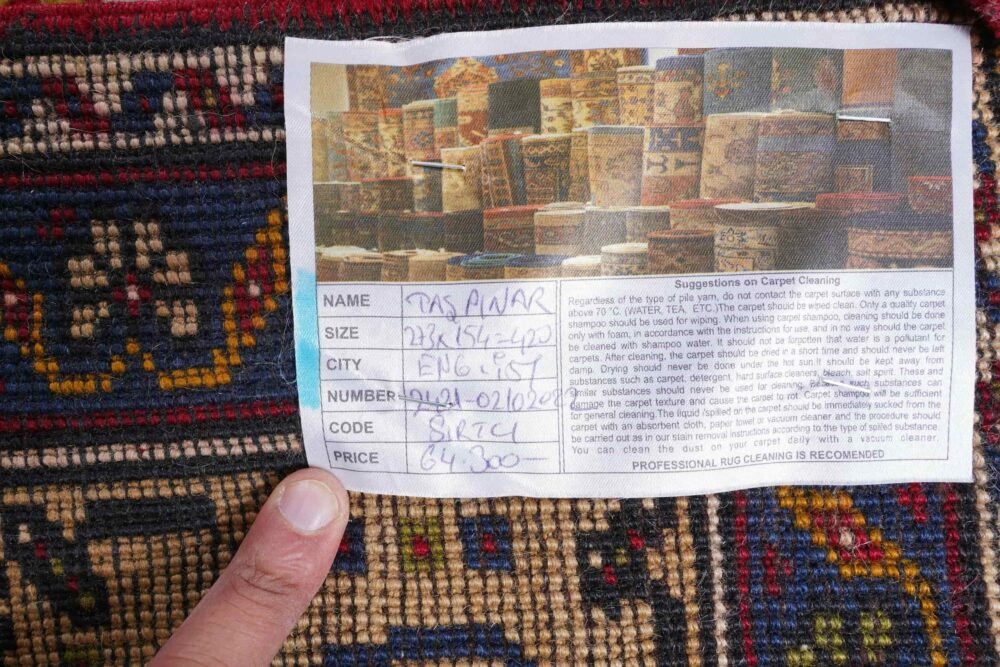 NAME TAŞPINAR
SIZE
CITY ENG. İŞİ
NUMBER
CODE
PRICE 64.300-
Suggestions on Carpet Cleaning
Regardless of the type of pile yarn, do not contact the carpet surface with any substance
above 70 °C. (WATER, TEA, ETC.)The carpet should be wiped clean. Only a quality carpet
shampoo should be used for wiping. When using carpet shampoo, cleaning should be done
only with foam, in accordance with the instructions for use, and in no way should the carpet
be cleaned with shampoo water. It should not be forgotten that water is a pollutant for
carpets. After cleaning, the carpet should be dried in a short time and should never be left
damp. Drying should never be done under the hot sun it should be kept away from
substances such as carpet, detergent, hard surface cleaners, bleach, salt spirit. These and
similar substances should never be used for cleaning. such substances can
damage the carpet texture and cause the carpet to rot. Carpet shampoo will be sufficient
for general cleaning.The liquid /spilled on the carpet should be immediately sucked from the
carpet with an absorbent cloth, paper towel or vacuum cleaner and the procedure should
be carried out as in our stain removal instructions according to the type of spilled substance.
You can clean the dust on your carpet daily with a vacuum cleaner.
PROFESSIONAL RUG CLEANING IS RECOMENDED